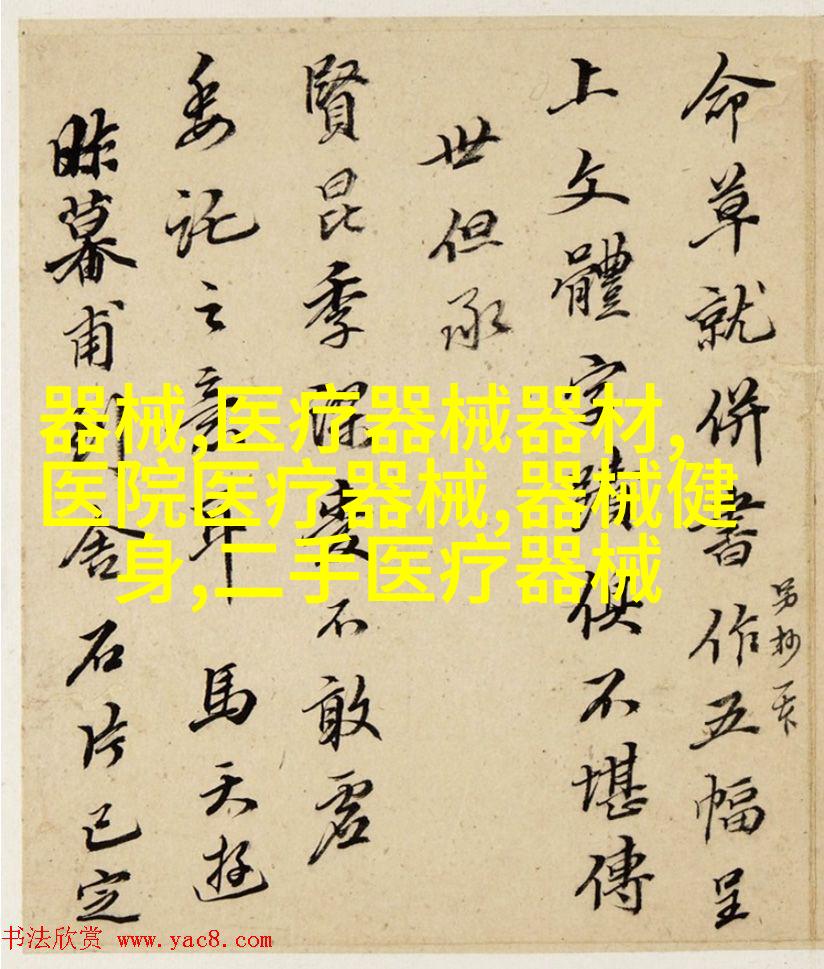 命草就併書作五幅呈
另抄一天
上文體字蹟俱不堪傳
世但承
賢昆季深愛不敢虛
委託之意耳 馬天遊
昨暮甫到舍石片已定
器械,医疗器械器材,
医院医疗器械,器械健
身,二手医疗器械
书法欣赏 www.yac8.com